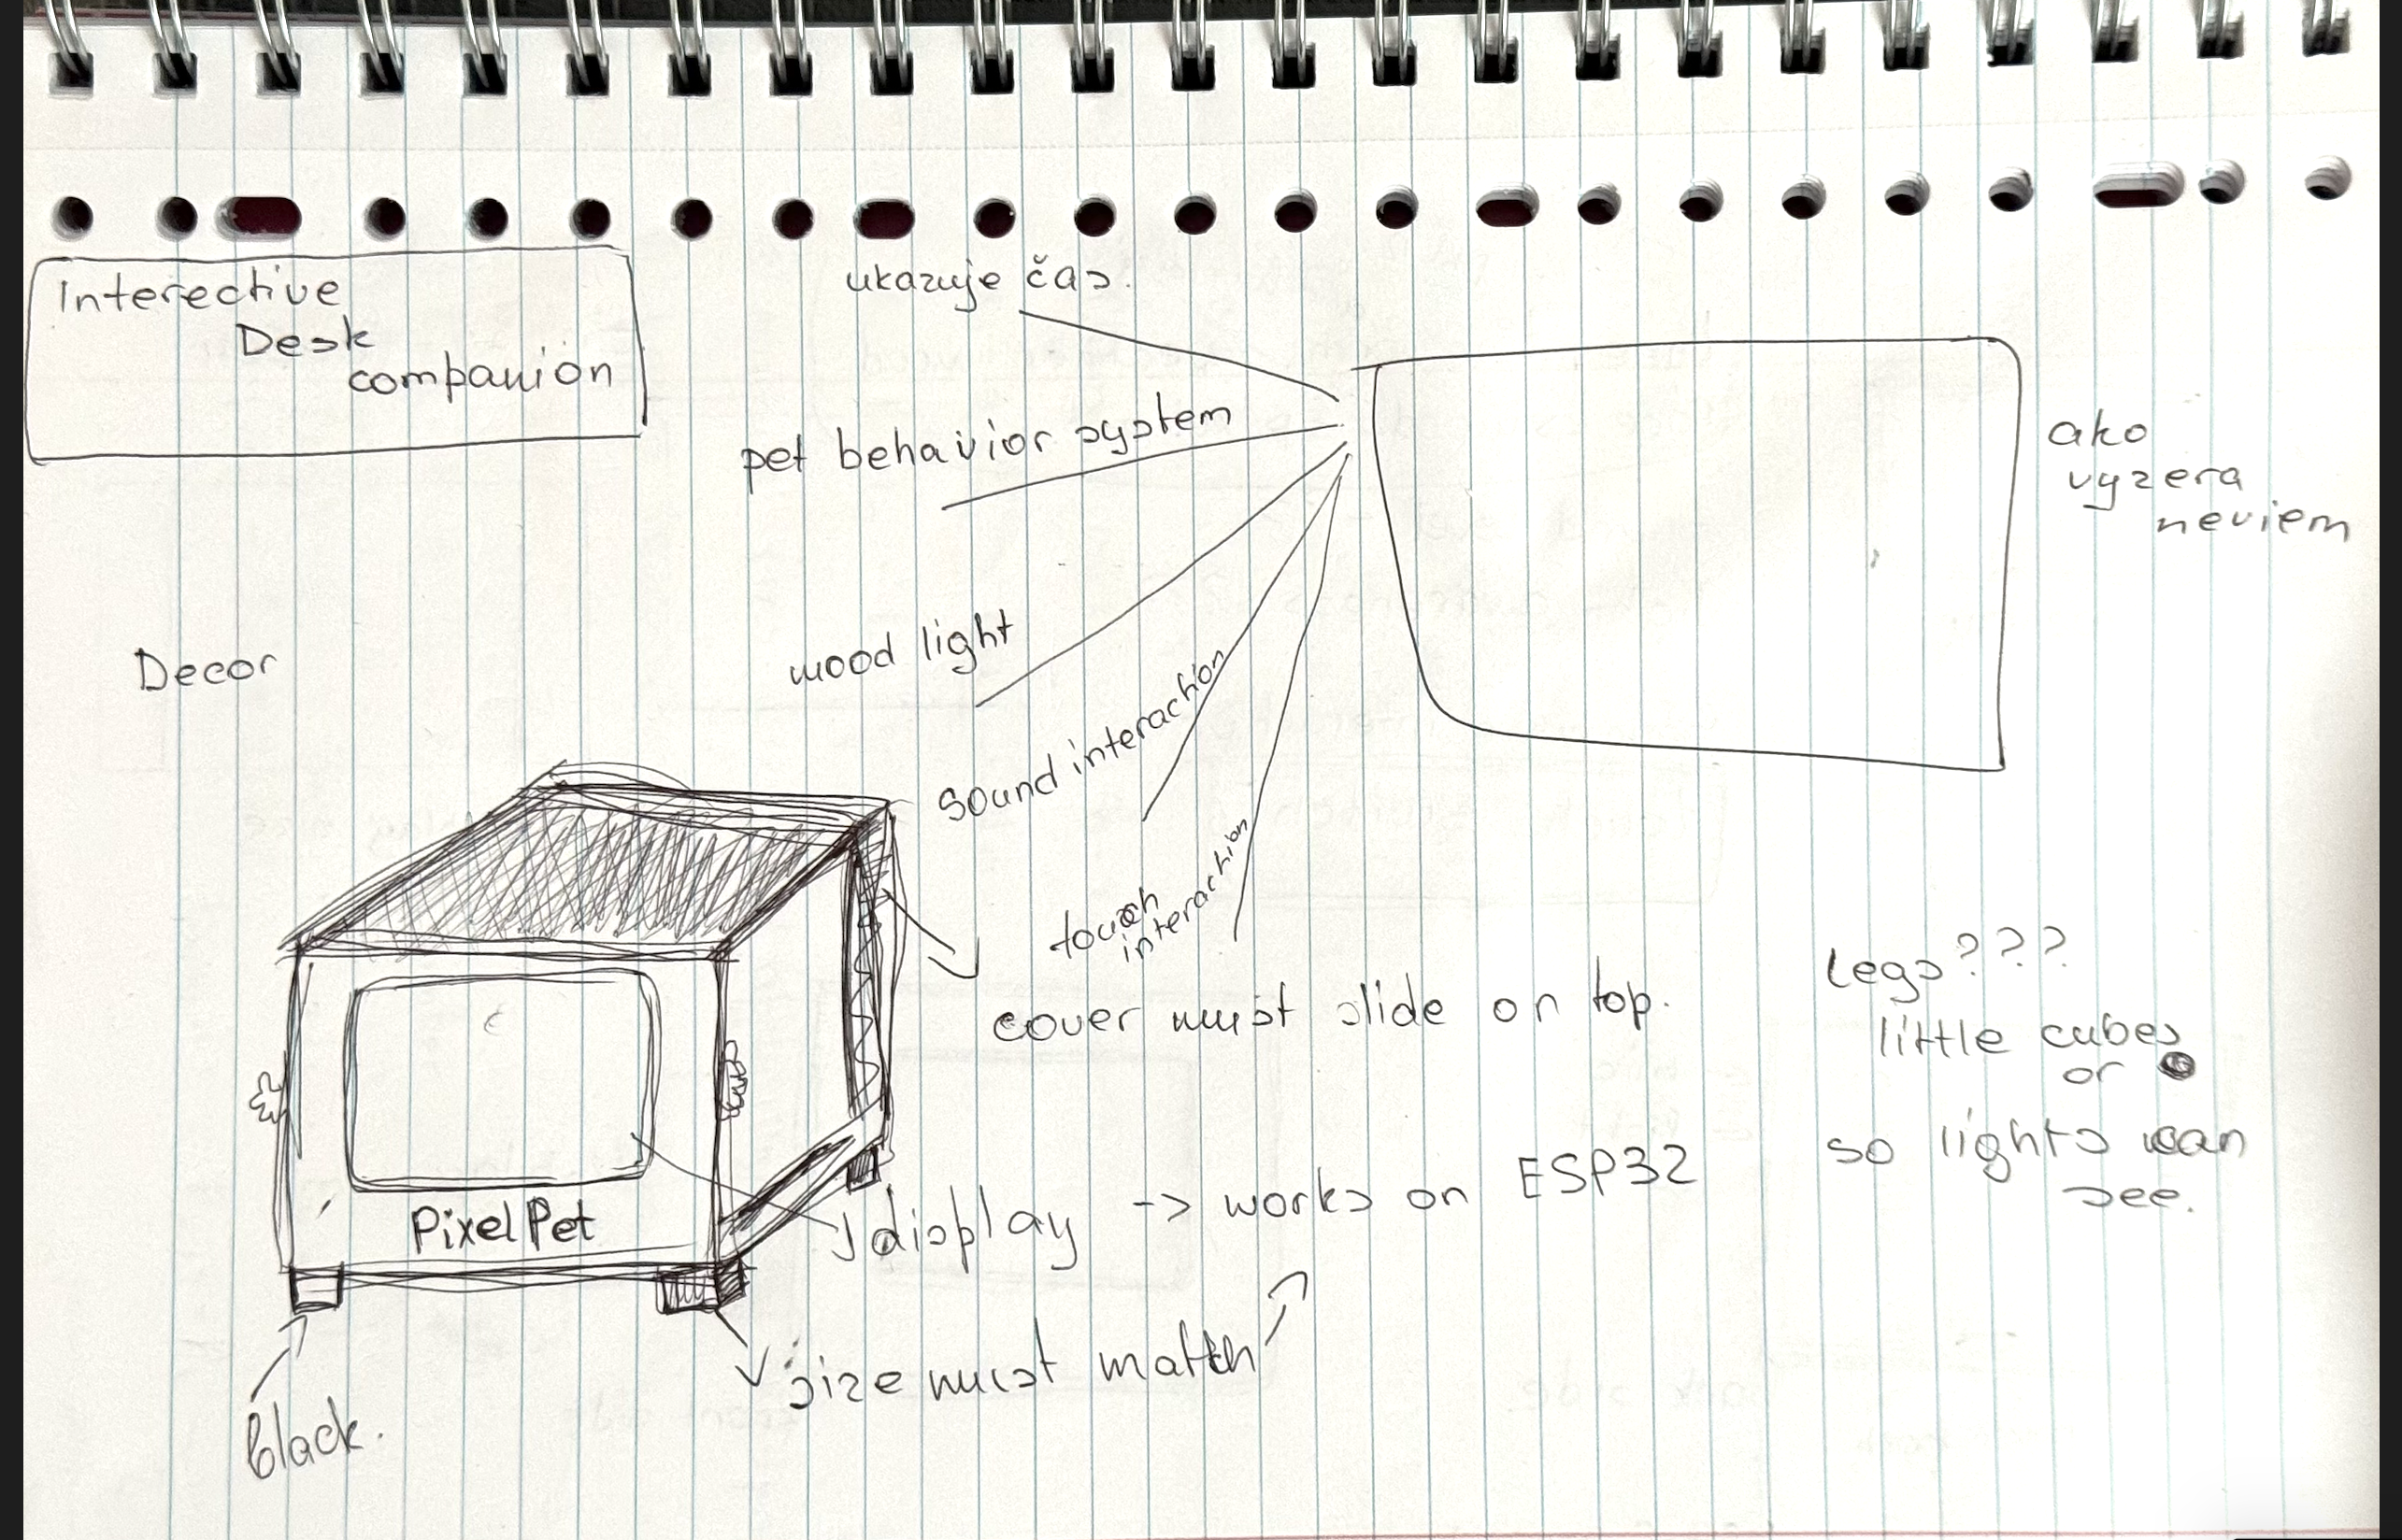 Interective
Desk
companion
ukazuje čas.
pet behavior system
mood light
sound interaction
touch
interaction
ako
vyzera
neviem
Decor
cover must slide on top.
Lego???
little cubes
or
so lights can
see.
PixelPet
display -> works on ESP32
size must match
black.